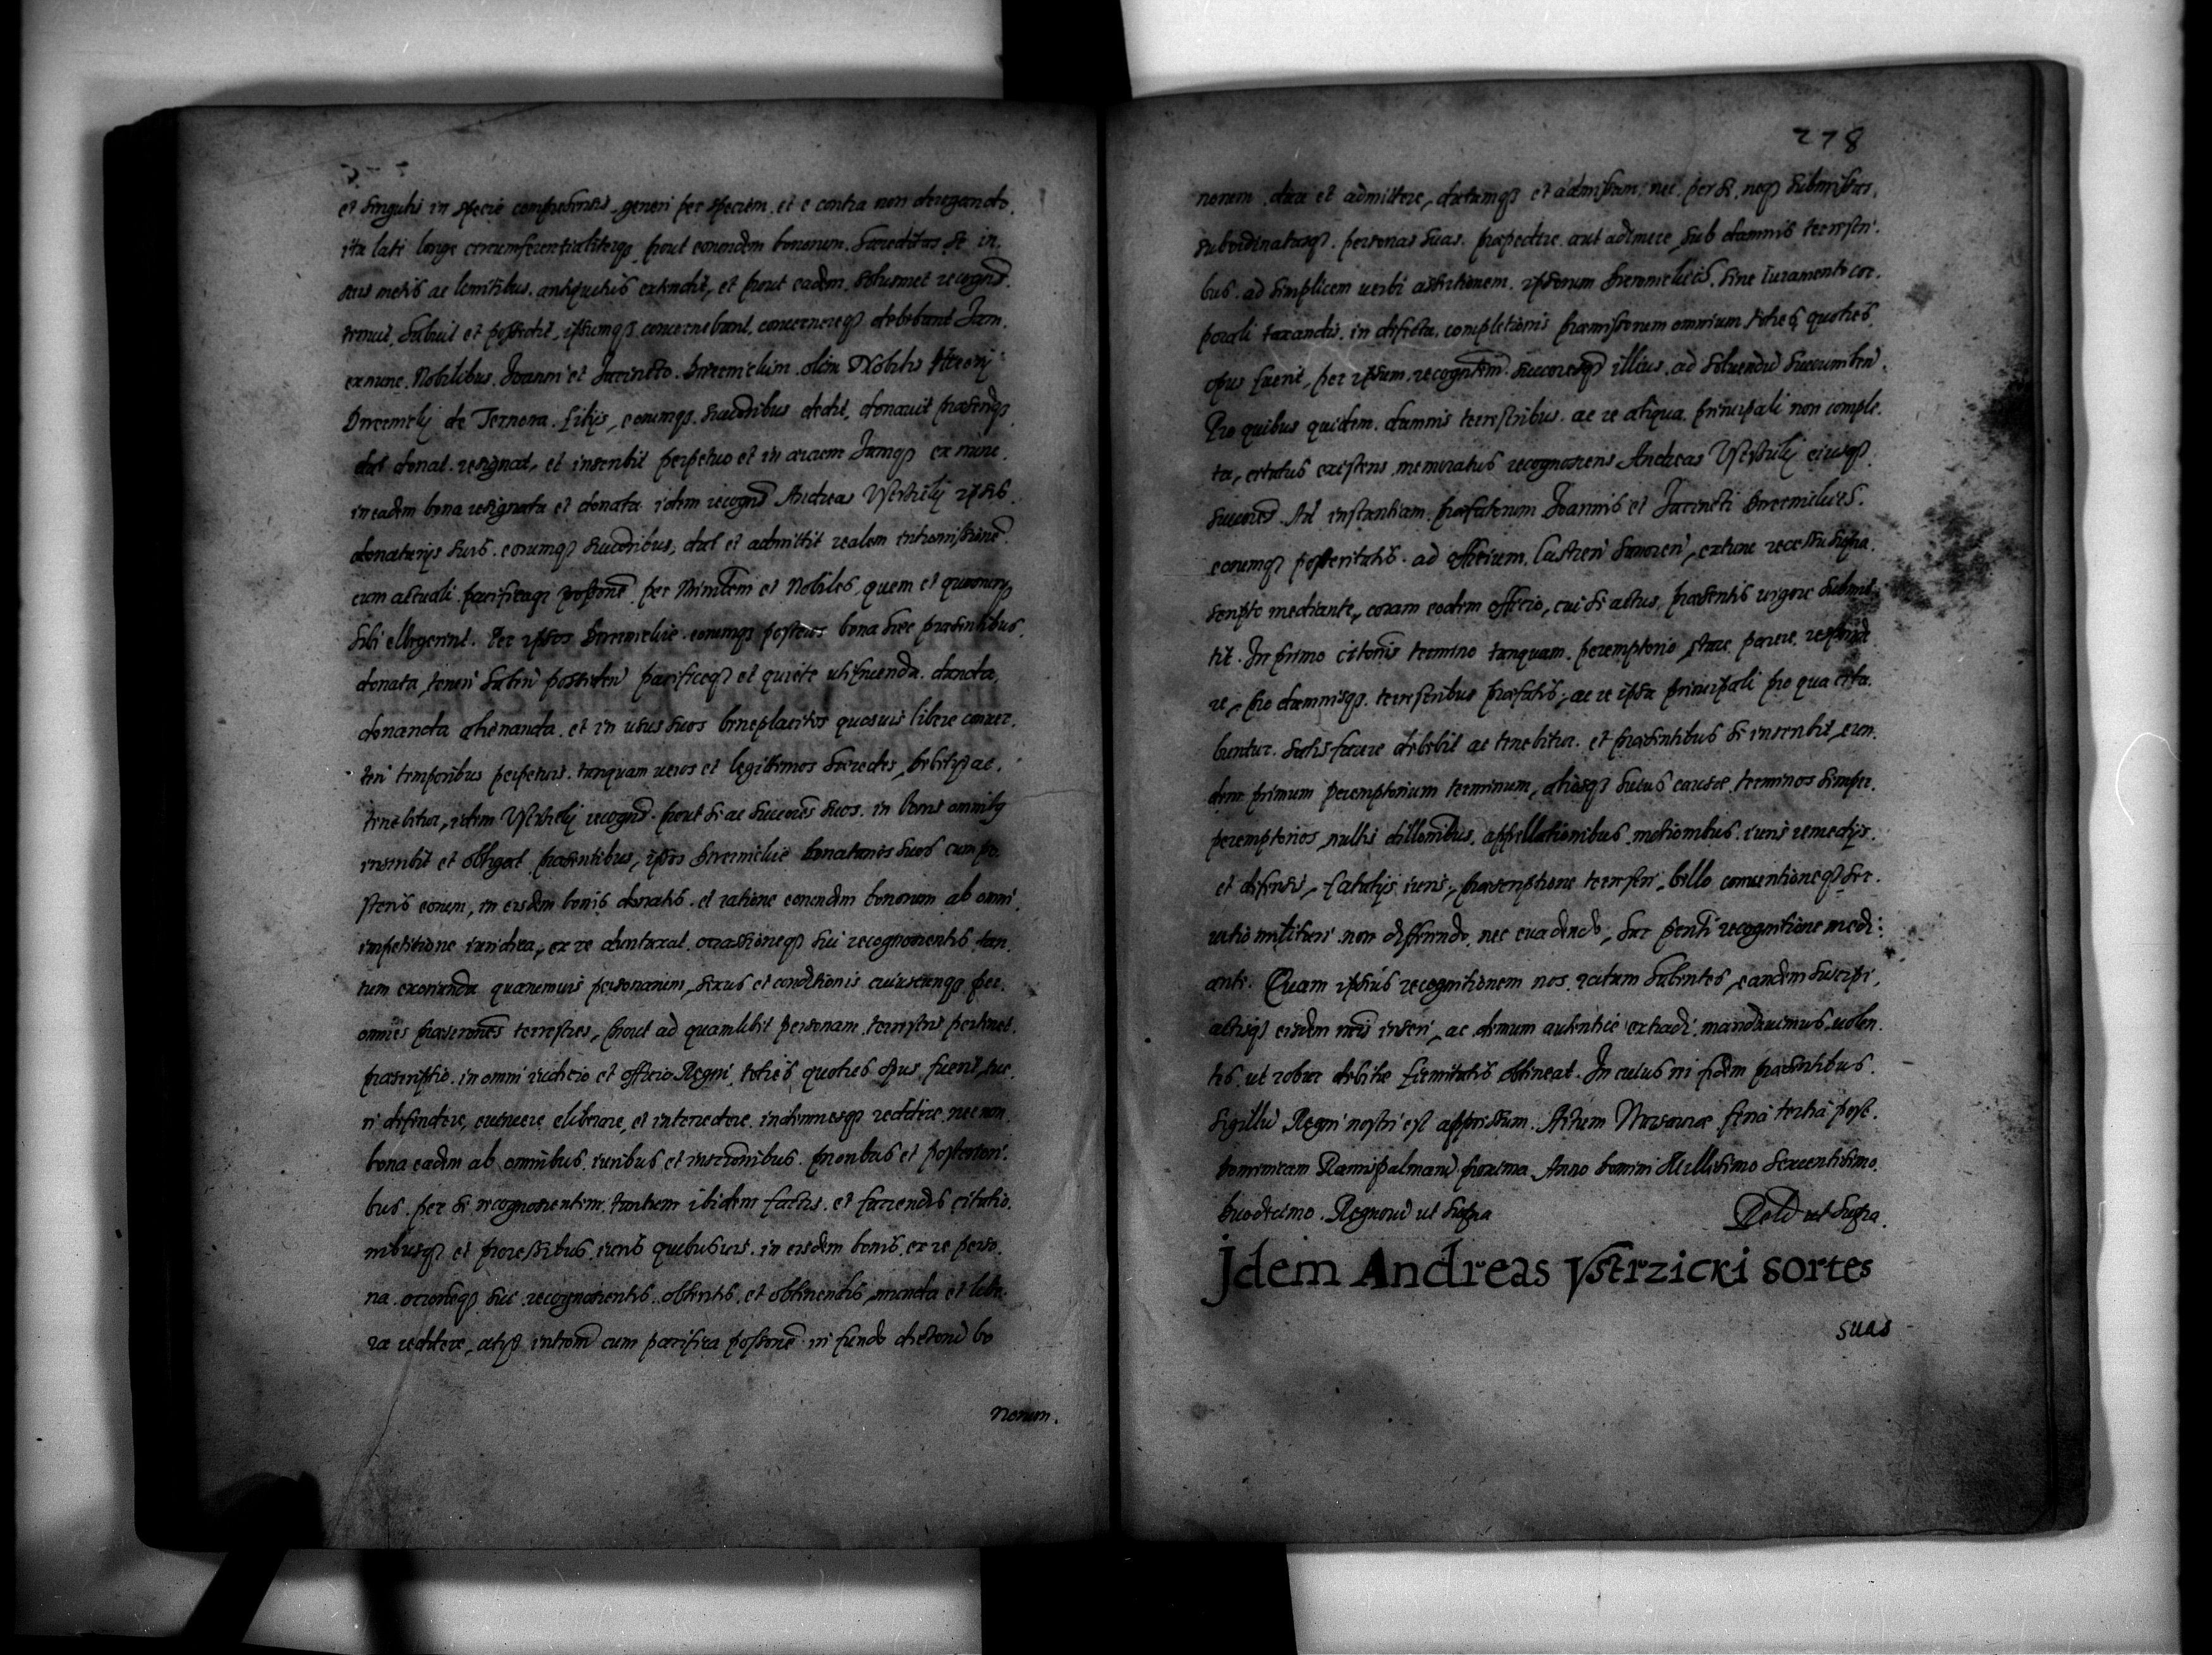 et singulis in specie comprehensis, generi per speciem, et e contra non derogando.
ita late longe circumferentialiterqȝ, prout eorundem bonorum haereditas se in
suis metis ac limitibus antiquitus extendit, et prout eadem solusmet recognd
tenuit, habuit et possedit, ipsumqȝ concernebant, concernereqȝ debebunt Jam
exnunc Nobilibus Joanni et Jacincto olim Nobilis
de filijs, eorumqȝ succoribus dedit, donauit
dat donat resignat, et inscribit perpetuo et in aeuum Jamqȝ ex nunc
in eadem bona resignata et donata idem recognd Andreas Vstrzicky ipsis
donatarijs suis eorumqȝ succoribus, dat et admittit realem intromissione
cum actuali pacificaqȝ possone per Ministem et Nobiles, quem et quoscunqȝ
sibi ellegerint. Per ipsos eorumqȝ posteros bona haec praesentibus
donata, teneri haberi possideri pacificeqȝ et quiete utifruenda, danda,
donanda alienanda, et in usus suos beneplacitos quosuis libere conuer
teri temporibus perpetuis, tanquam ueros et legittimos haeredes, debebitqȝ ac
tenebitur, idem Vstrzicky recognd prout se ac succores suos in bonis omnibȝ
inscribit et obligat praesentibus, ipsos donatarios suos cum po
steris eorum, in eisdem bonis donatis et ratione eorundem bonorum ab omni
impetitione iuridica, ex re duntaxat occasioneqȝ sui recognoscentis tan
tum exorienda quarumuis personarum, sexus et conditionis cuiuscunqȝ per
omnes praescriones terrestres, prout ad quamlibet personam terrestris pertinet
praescriptio, in omni iudicio et officio Regni, toties quoties opus fuerit, tue
ri defendere, euincere eliberare, et intercedere indemnesqȝ reddere nec non
bona eadem ab omnibus iuribus et inscriconibus prioribus et posteriori
bus per se recognoscentem tantum ibidem factis et faciendis citatio
nibusqȝ et processibus iuris quibusuis in eisdem bonis ex re perso
na ocioneqȝ sui recognoscentis obtentis et obtinendis, munda et libe
ra reddere, atqȝ introm cum pacifica possone in fundo dictoru bo
norum.
278
norum dare et admittere, datamqȝ et admissam nec per se neqȝ submissas
subordinatasqȝ personas suas praepedire aut adimere, sub damnis terrestri
bus ad simplicem uerbi assertionem ipsorum sine iuramento cor
porali taxandis in defectu completionis praemissorum omnium toties quoties
opus fuerit, per ipsum recogntem succoresqȝ illius ad soluendu succumben
Pro quibus quidem damnis terrestribus ac re aliqua principali non comple
ta, citatus existens memoratus recognoscens Andreas Vstrzicky eiusqȝ
succores Ad instantiam praefatorum Joannis et Jacincti
eorumqȝ posteritatis ad officium Castren extunc recessu
scripto mediante, coram eodem officio, cui se actus praesentis uigore submit
tit. In primo citonis termino tanquam peremptorio stare parere responde
re, pro damnisqȝ terrestribus praefatis, ac re ipsa principali pro qua cita
buntur satisfacere debebit ac tenebitur et praesentibus se inscribit, eun
dem primum peremptorium terminum, aliosqȝ huius causae terminos semper
peremptorios nullis dillonibus, appellationibus, motionibus, iuris remedijs
et defensis, fatalijs iuris, praescriptione terrestri, bello conuentioneqȝ ser
uitio militari non differendo nec euadendo, hac pnti recognitione medi
ante. Quam ipsius recognitionem nos ratam habentes, eandem suscipi,
actisqȝ eisdem nris inseri, ac demum autentice extradi mandauimus uolen
tes ut robur debitae firmitatis obtineat. In cuius rei fidem praesentibus
sigillu Regni nostri est appressum. Actum Warsouiae feria tertia post
Dominicam Ramispalmaru proxima Anno Domini Millesimo Sexcentesimo
Duodecimo. Regnoru ut supra Relo ut supra.
Jdem Andreas Vstrzicki sortes
suas